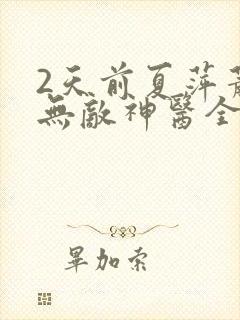 2天前夏萍
無敵神醫全
畢加索